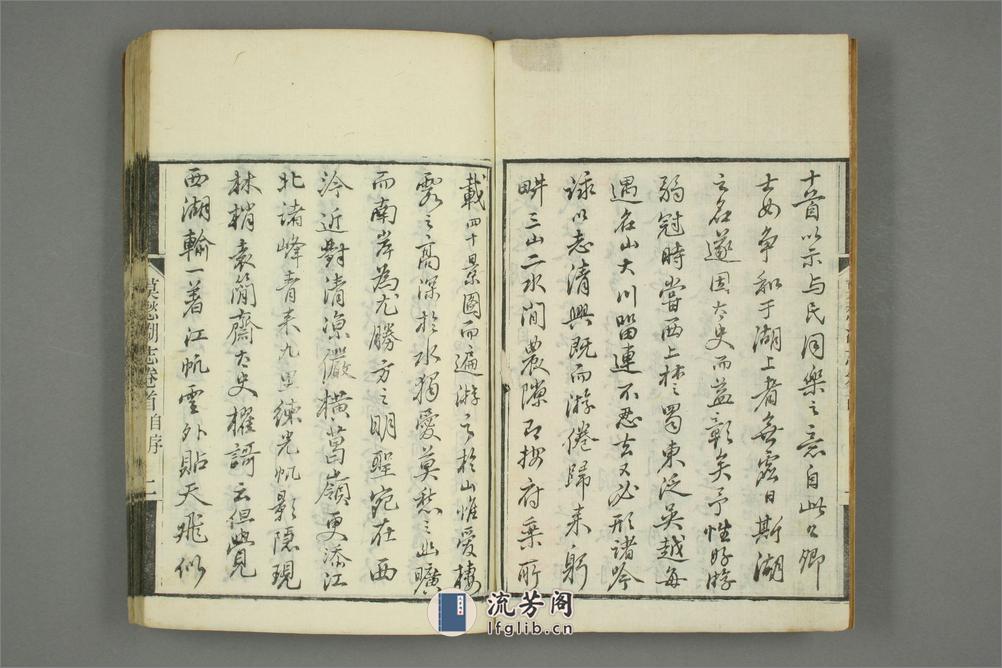 十首以示与民同樂之意自此公卿
士女争和于湖上者無虚日斯湖
之名遂因太史而益彰矣予性好游
弱冠時嘗西上林之蜀東泛吳越每
遇名山大川留連不忍去又必形諸吟
詠以志清興既而游倦歸来躬
畊三山二水間農隙即按府乘所
載四十景圖而遍游之於山惟愛棲
霞之高深於水獨愛莫愁之幽曠
而南岸為尤勝方之明聖宛在西
泠近對清涼儼橫葛嶺更添江
北諸峰青来九點練光帆影隱現
林梢袁簡齋太史櫂謌云但此見
西湖輸一著江帆雲外貼天飛似
莫愁湖志卷首自序
二
流芳阁
lfglib.cn